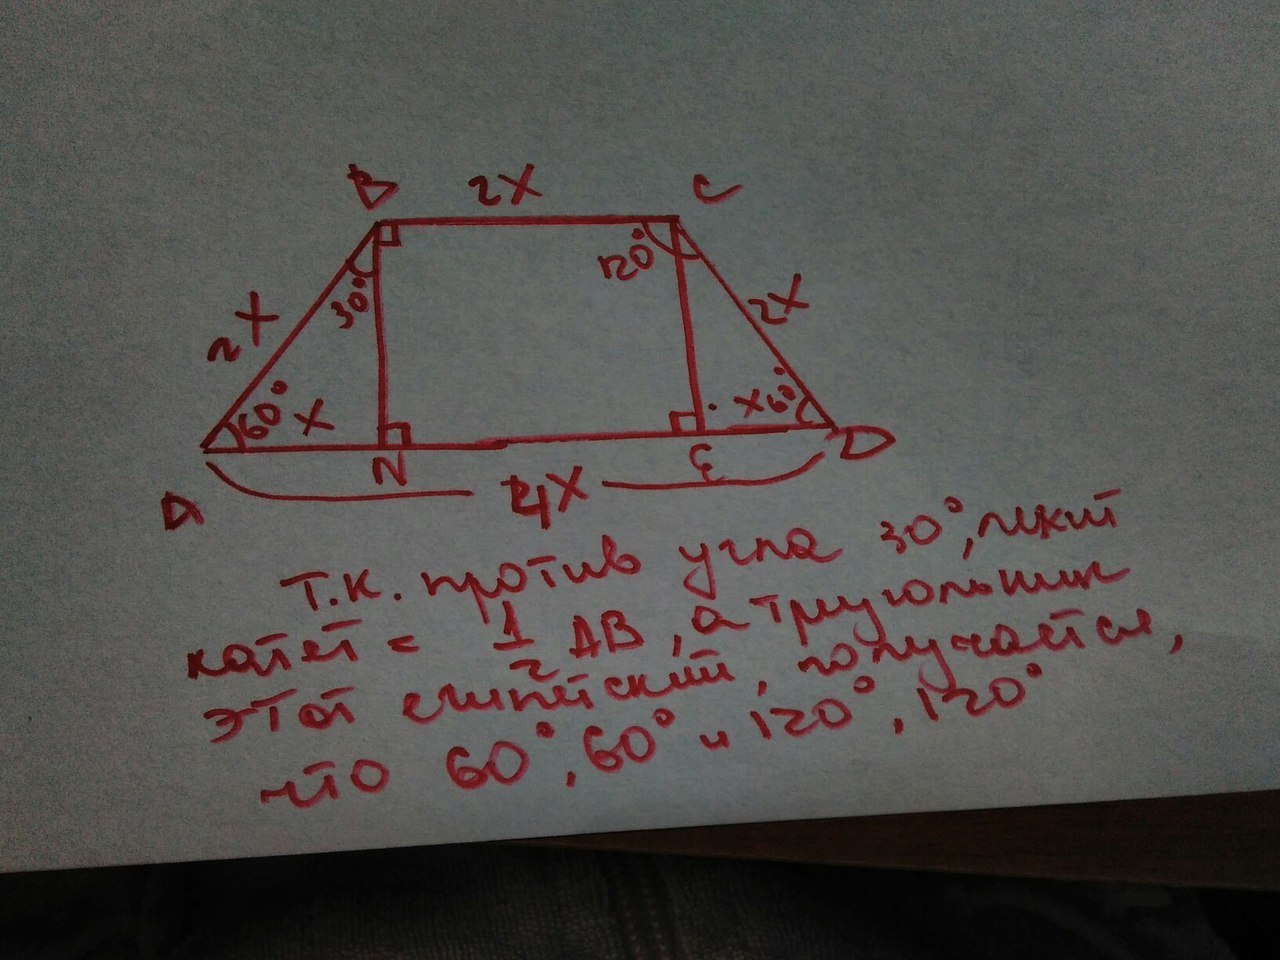 B 2X C
120°
2X 30° 2X
60° X X 60°
A N E D
4X
Т.К. против угла 30°, лежит
катет = 1/2 AB, а треугольник
этот египетский, получается,
что 60°, 60° и 120°, 120°